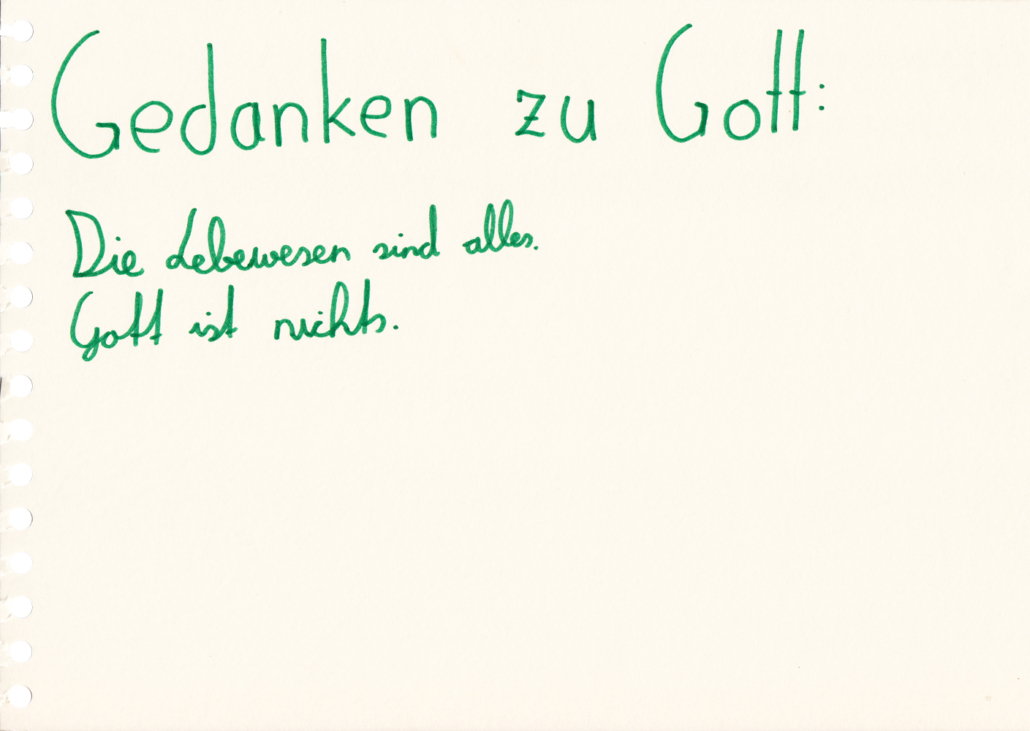 Gedanken zu Gott:
Die Lebewesen sind alles.
Gott ist nichts.